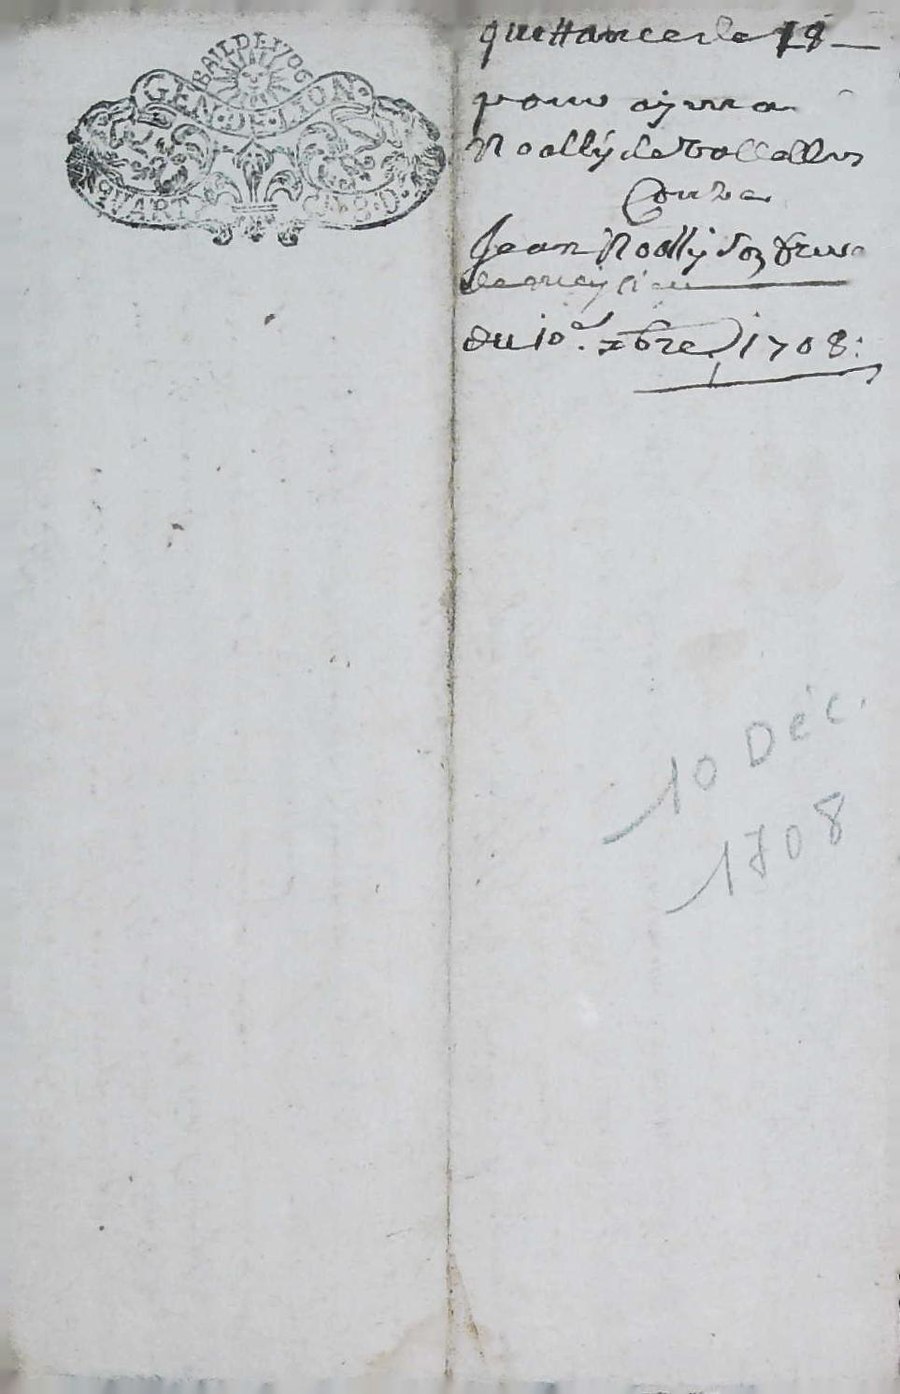 BAIL DE 1706
GEN. DE. LION.
QUART
quittance de 18
pour aymé
Noally de
Contre
Jean Noally son frere
du 10e. xbre 1708.
10 Déc.
1708